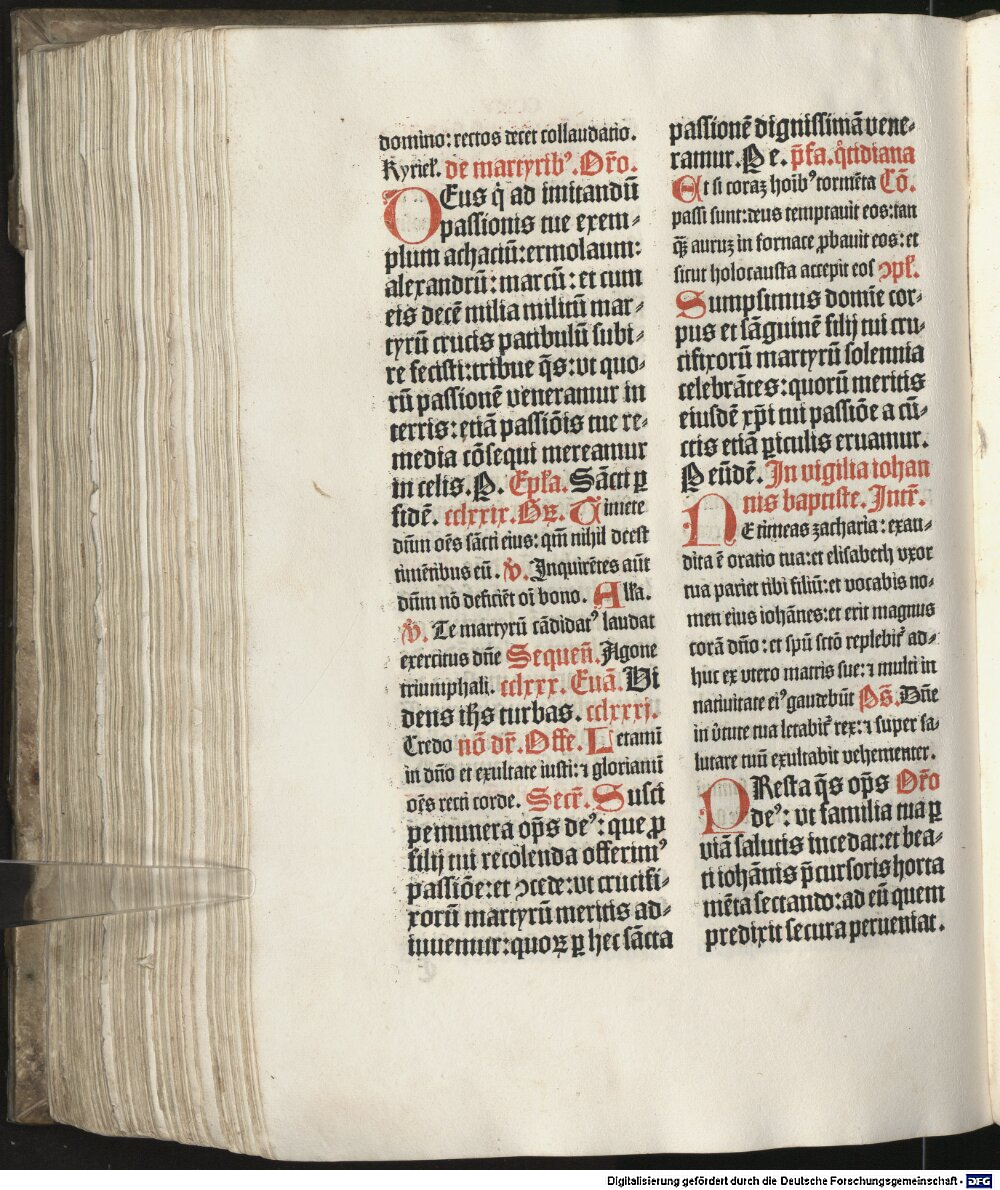 domino: rectos decet collaudatio.
Kyriel̄. de martyrib⁹. Or̄o.
DEus q̇ ad imitandū
passionis tue exem⸗
plum achaciū: ermolaum:
alexandrū: marcū: et cum
eis decē milia militū mar⸗
tyrū crucis patibulū subi⸗
re fecisti: tribue q̄s: vt quo⸗
rū passionē veneramur in
terris: etiā passiōis tue re⸗
media cōsequi mereamur
in celis. P. Epl̄a. Sācti ꝑ
fidē. cclxxix. Gꝝ. Timete
dn̄m oēs sācti eius: qm̄ nihil deest
timētibus eū. v̇. Inquirētes aūt
dn̄m nō deficiēt oī bono. All̄a.
v̇. Te martyrū cādidat⁹ laudat
exercitus dn̄e Sequen̄. Agone
triumphali. cclxxx. Euā. Vi
dens ih̄s turbas. cclxxxj.
Credo nō dr̄. Offe. Letamī
in dn̄o et exultate iusti: ⁊ gloriamī
oēs recti corde. Secr̄. Susci
pe munera op̄s de⁹: que ꝓ
filij tui recolenda offerim⁹
passiōe: et ꝯcede: vt crucifi⸗
xorū martyrū meritis ad⸗
iuuemur: quoꝝ ꝑ hec sācta
passionē dignissimā vene⸗
ramur. Pe. p̄fa. q̄tidiana
Et si coraꝫ hoīb⁹ tormēta Cō.
passi sunt: deus temptauit eos: tan
qꝫ̄ auruꝫ in fornace ꝓbauit eos: et
sicut holocausta accepit eos ꝯpl̄.
Sumpsimus domīe cor⸗
pus et sāguinē filij tui cru⸗
cifixorū martyrū solennia
celebrātes: quorū meritis
eiusdē xp̄i tui passiōe a cū⸗
ctis etiā ꝑiculis eruamur.
Peūdē. In vigilia iohan
nis baptiste. Intr̄.
NE timeas zacharia: exau⸗
dita ē oratio tua: et elisabeth vxor
tua pariet tibi filiū: et vocabis no⸗
men eius iohānes: et erit magnus
corā dn̄o: et spū sctō replebiť ad⸗
huc ex vtero matris sue: ⁊ multi in
natiuitate ei⁹ gaudebūt Ps̄. Dn̄e
in v̇tute tua letabiť rex: ⁊ super sa⸗
lutare tuū exultabit vehementer.
PResta q̄s op̄s Or̄o
de⁹: vt familia tua ꝑ
viā salutis incedat: et bea⸗
ti iohānis p̄cursoris horta
mēta sectando: ad eū quem
predixit secura perueniat.
Digitalisierung gefördert durch die Deutsche Forschungsgemeinschaft - DFG